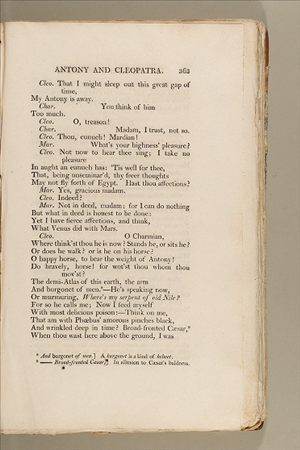 ANTONY AND CLEOPATRA. 363
Cleo. That I might sleep out this great gap of
time,
My Antony is away.
Char. You think of him
Too much.
Cleo. O, treason!
Char. Madam, I trust, not so.
Cleo. Thou, eunuch! Mardian!
Mar. What's your highness' pleasure?
Cleo. Not now to hear thee sing; I take no
pleasure
In aught an eunuch has: 'Tis well for thee,
That, being unseminar'd, thy freer thoughts
May not fly forth of Egypt. Hast thou affections?
Mar. Yes, gracious madam.
Cleo. Indeed?
Mar. Not in deed, madam; for I can do nothing
But what in deed is honest to be done:
Yet I have fierce affections, and think,
What Venus did with Mars.
Cleo. O Charmian,
Where think'st thou he is now? Stands he, or sits he?
Or does he walk? or is he on his horse?
O happy horse, to bear the weight of Antony!
Do bravely, horse! for wot'st thou whom thou
mov'st?
The demi-Atlas of this earth, the arm
And burgonet of men.—He's speaking now,
Or murmuring, Where's my serpent of old Nile?
For so he calls me; Now I feed myself
With most delicious poison:—Think on me,
That am with Phœbus' amorous pinches black,
And wrinkled deep in time? Broad-fronted Cæsar,
When thou wast here above the ground, I was
And burgonet of men.] A burgonet is a kind of helmet.
—— Broad-fronted Cæsar,] In allusion to Cæsar's baldness.